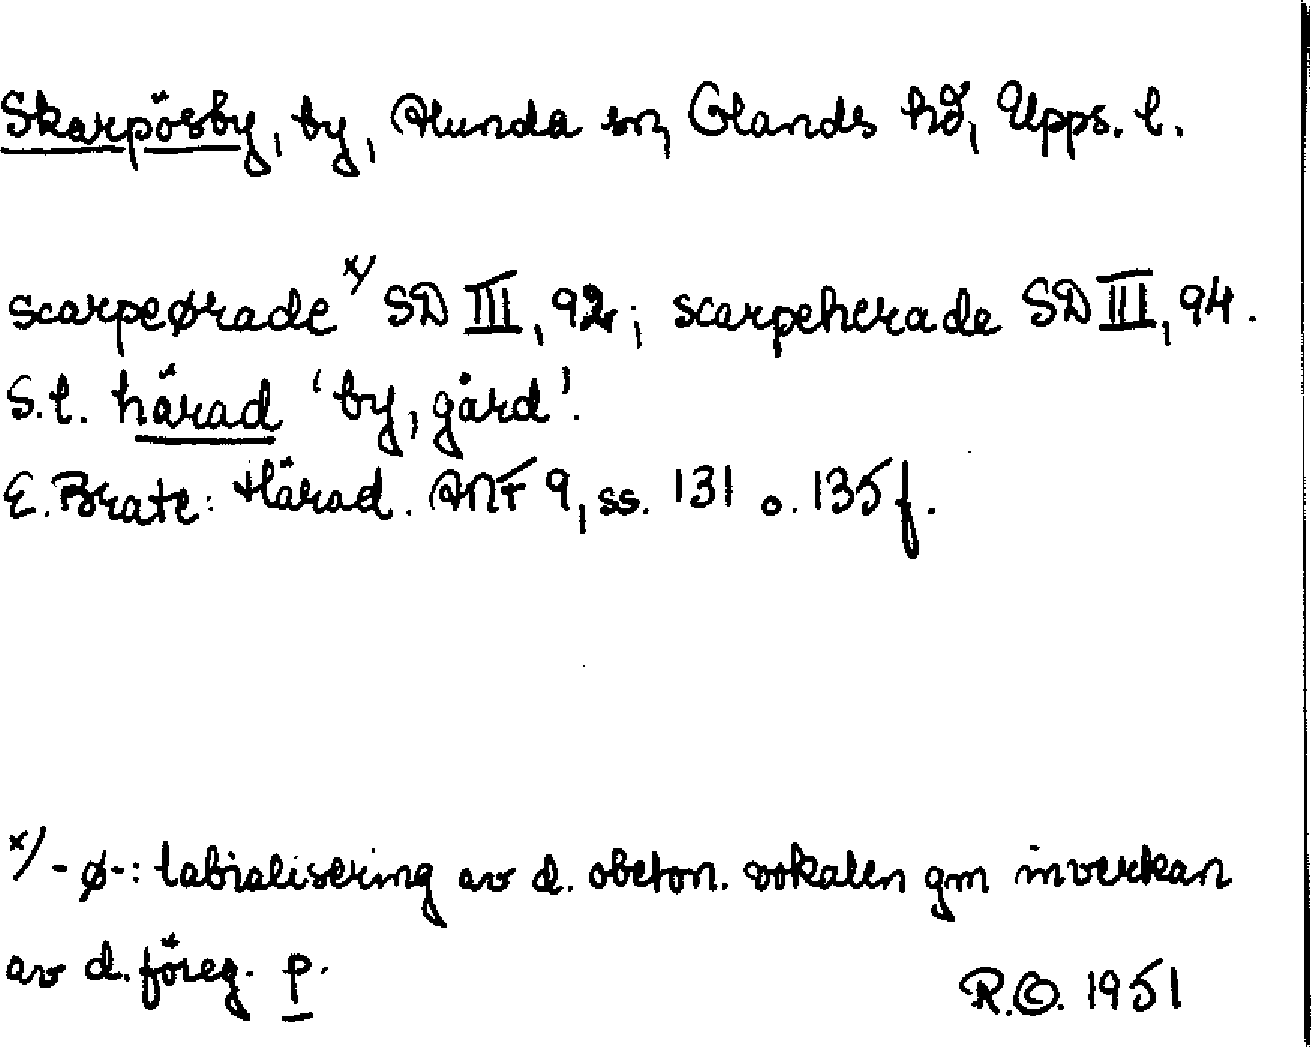 Skarpösby, by, Alunda sn, Olands hd, Upps. l.
scarpeørade x/ SD III, 92; scarpeherade SD III, 94.
S.l. härad 'by, gård'.
E. Brate: Härad. ANF 9, ss. 131 o. 135 f.
x/ -ø-: labialisering av d. obeton. vokalen gm inverkan
av d. föreg. p.
R.O. 1951